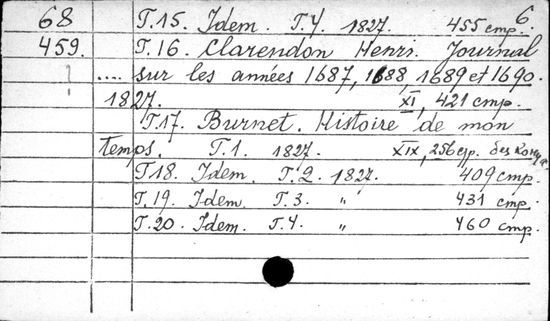 6
68 Т.15. Idem. Т.4. 1827. 455 стр.
459. Т.16. Clarendon Henri. Journal
.... sur les années 1687, 1688, 1689 et 1690.
1827. XI, 421 стр.
Т.17. Burnet. Histoire de mon
temps. Т.1. 1827. XIX, 256 стр. без конца.
Т.18. Idem. Т.2. 1827. 409 стр.
Т.19. Idem. Т.3. " 431 стр.
Т.20. Idem. Т.4. " 460 стр.